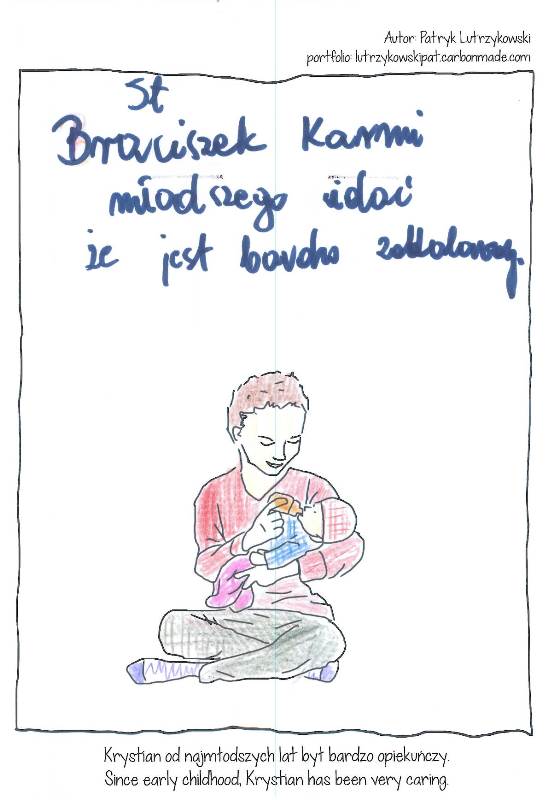 Autor: Patryk Lutrzykowski
portfolio: lutrzykowskipat.carbonmade.com
St
Braciszek Karmi
młodszego idać
że jest bardzo
Krystian od najmłodszych lat był bardzo opiekuńczy.
Since early childhood, Krystian has been very caring.